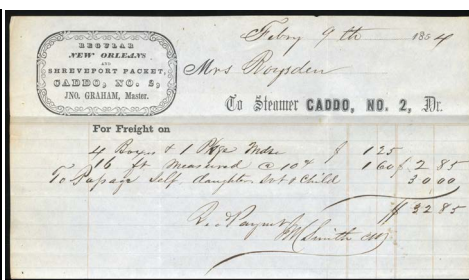 REGULAR
NEW ORLEANS
AND
SHREVEPORT PACKET,
CADDO, NO. 2,
JNO. GRAHAM, Master.
Feby 9th 1854
Mrs Roysden
To Steamer CADDO, NO. 2, Dr.
For Freight on
4 Boxes & 1 Mdse $ 1 25
16 ft measured @ 10 1 60 $ 2 85
To Passage Self. daughter Svt & Child 30 00
$ 32 85
Rec'd Payment
Smith